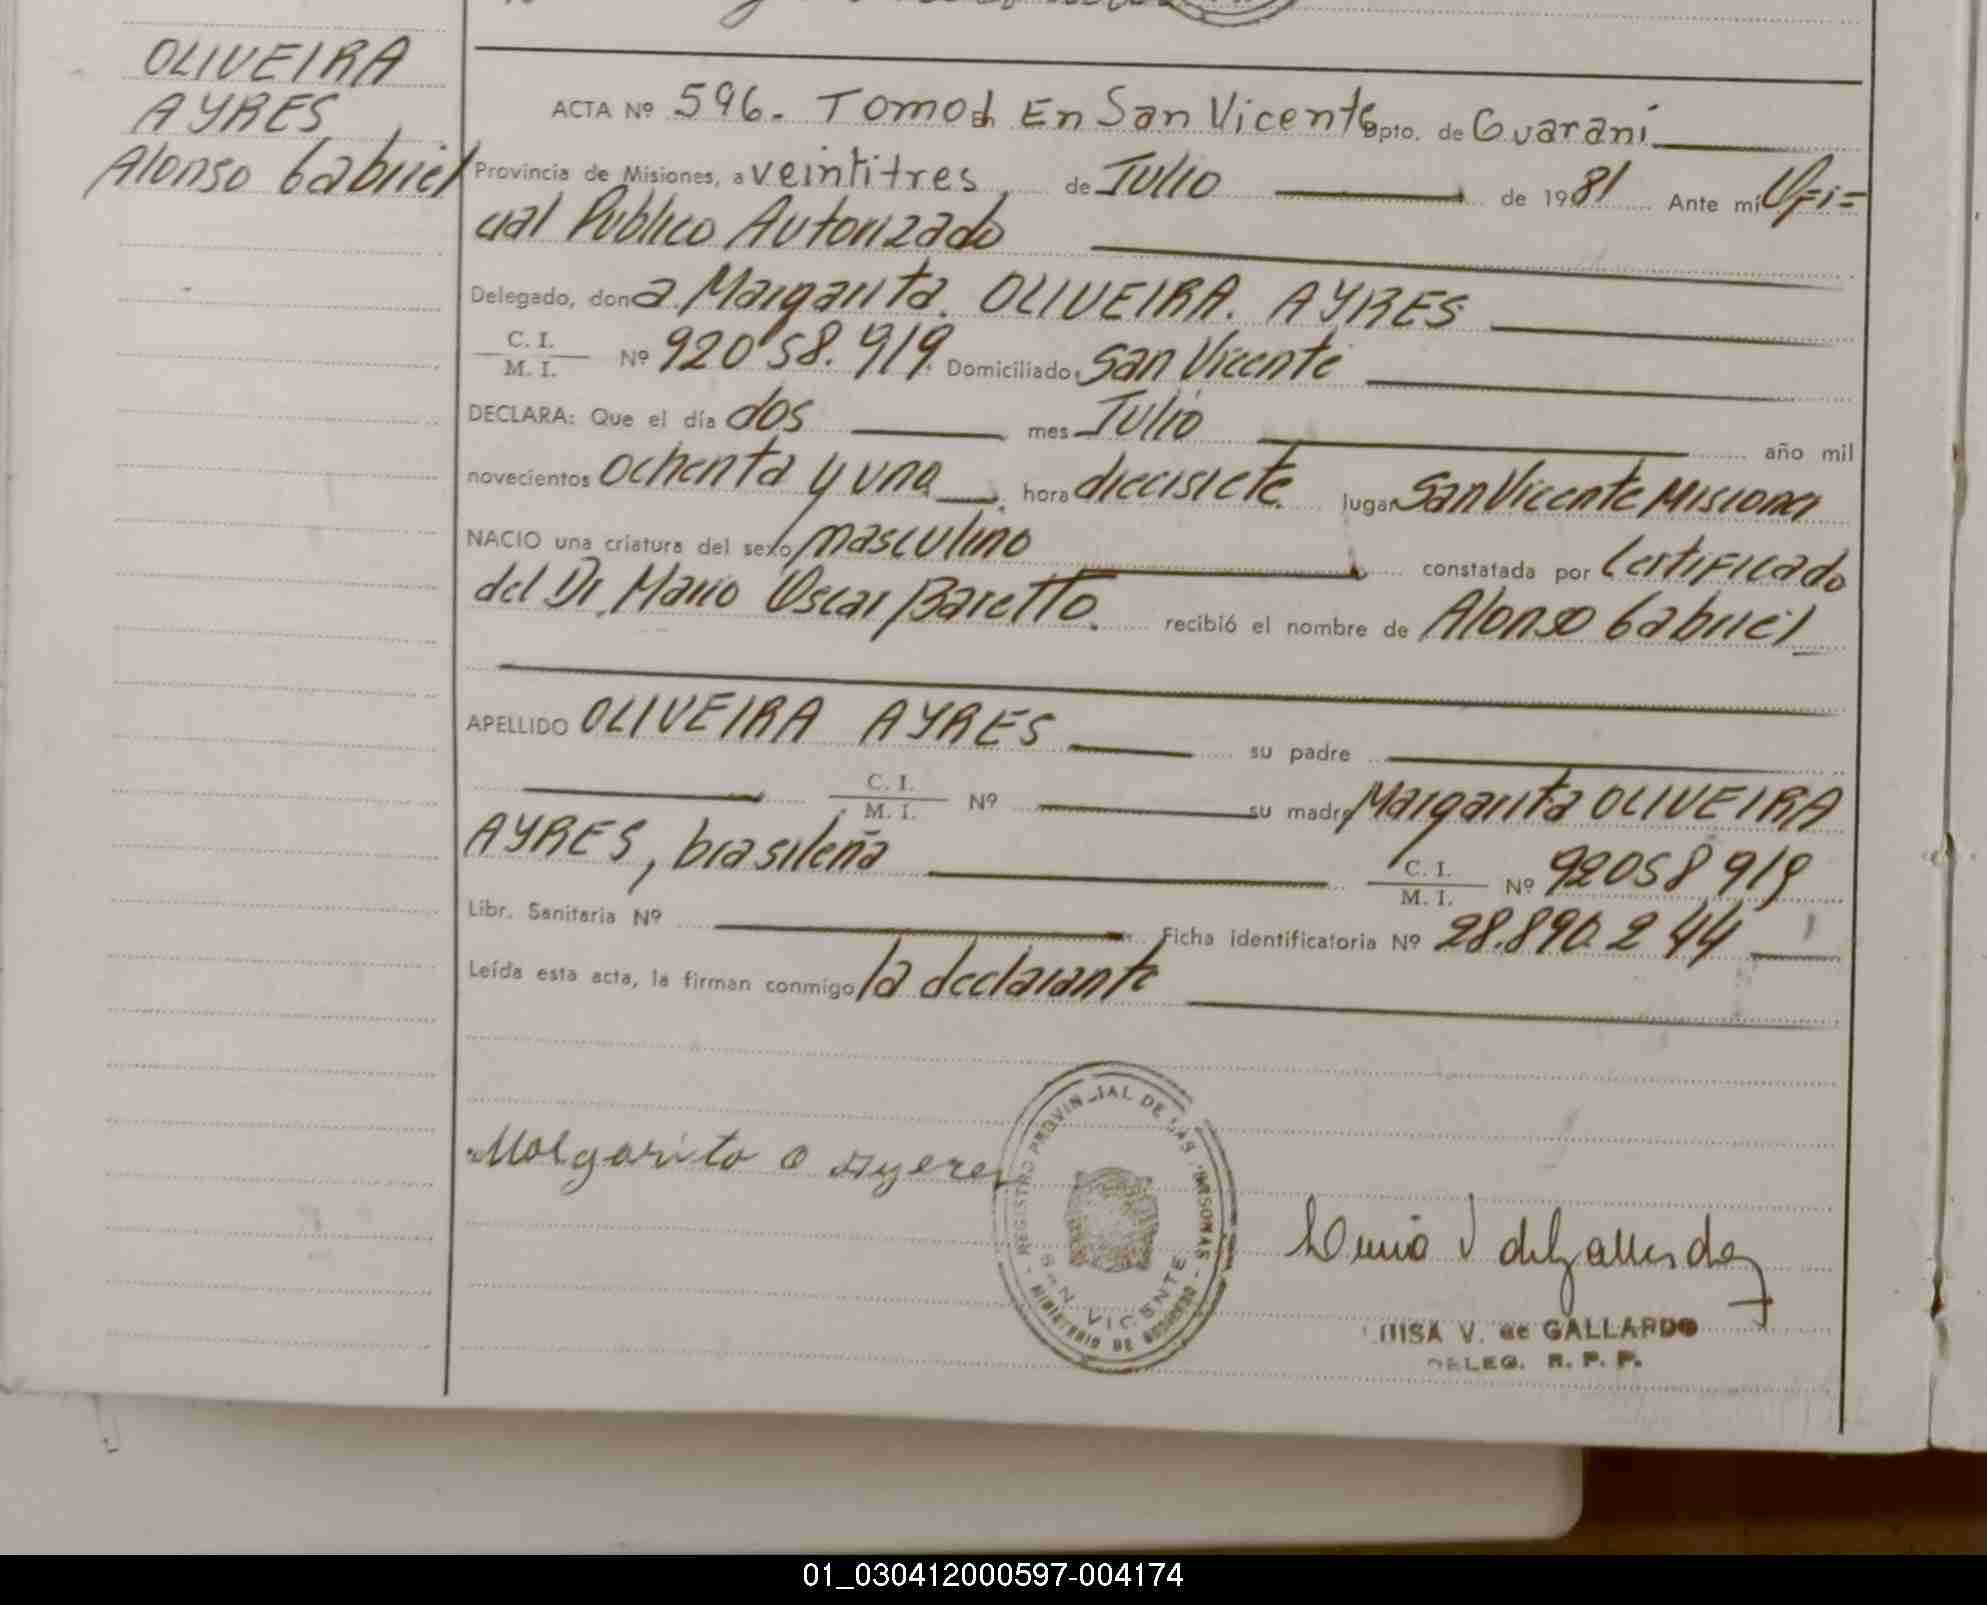 OLIVEIRA
AYRES
Alonso Gabriel
ACTA Nº 596. Tomo En San Vicente Dpto. de Guaraní
Provincia de Misiones, a veintitres de Julio de 1981 Ante mí Ofi=
cial Público Autorizado
Delegado, doña Margarita. OLIVEIRA. AYRES
C. I.
M. I. Nº 92058.919. Domiciliado San Vicente
DECLARA: Que el día dos mes Julio año mil
novecientos ochenta y uno hora diecisiete. lugar San Vicente Misiones
NACIO una criatura del sexo masculino constatada por Certificado
del Dr. Mario Oscar Baretto. recibió el nombre de Alonso Gabriel
APELLIDO OLIVEIRA AYRES su padre
C. I.
M. I. Nº su madre Margarita OLIVEIRA
AYRES, brasileña C. I.
M. I. Nº 92058919
Libr. Sanitaria Nº Ficha identificatoria Nº 28.890.244
Leída esta acta, la firman conmigo la declarante
Malgarita O Ayeres
REGISTRO PROVINCIAL DE LAS PERSONAS
SAN VICENTE
MINISTERIO DE GOBIERNO
LUISA V. de GALLARDO
DELEG. R. P. P.
01_030412000597-004174